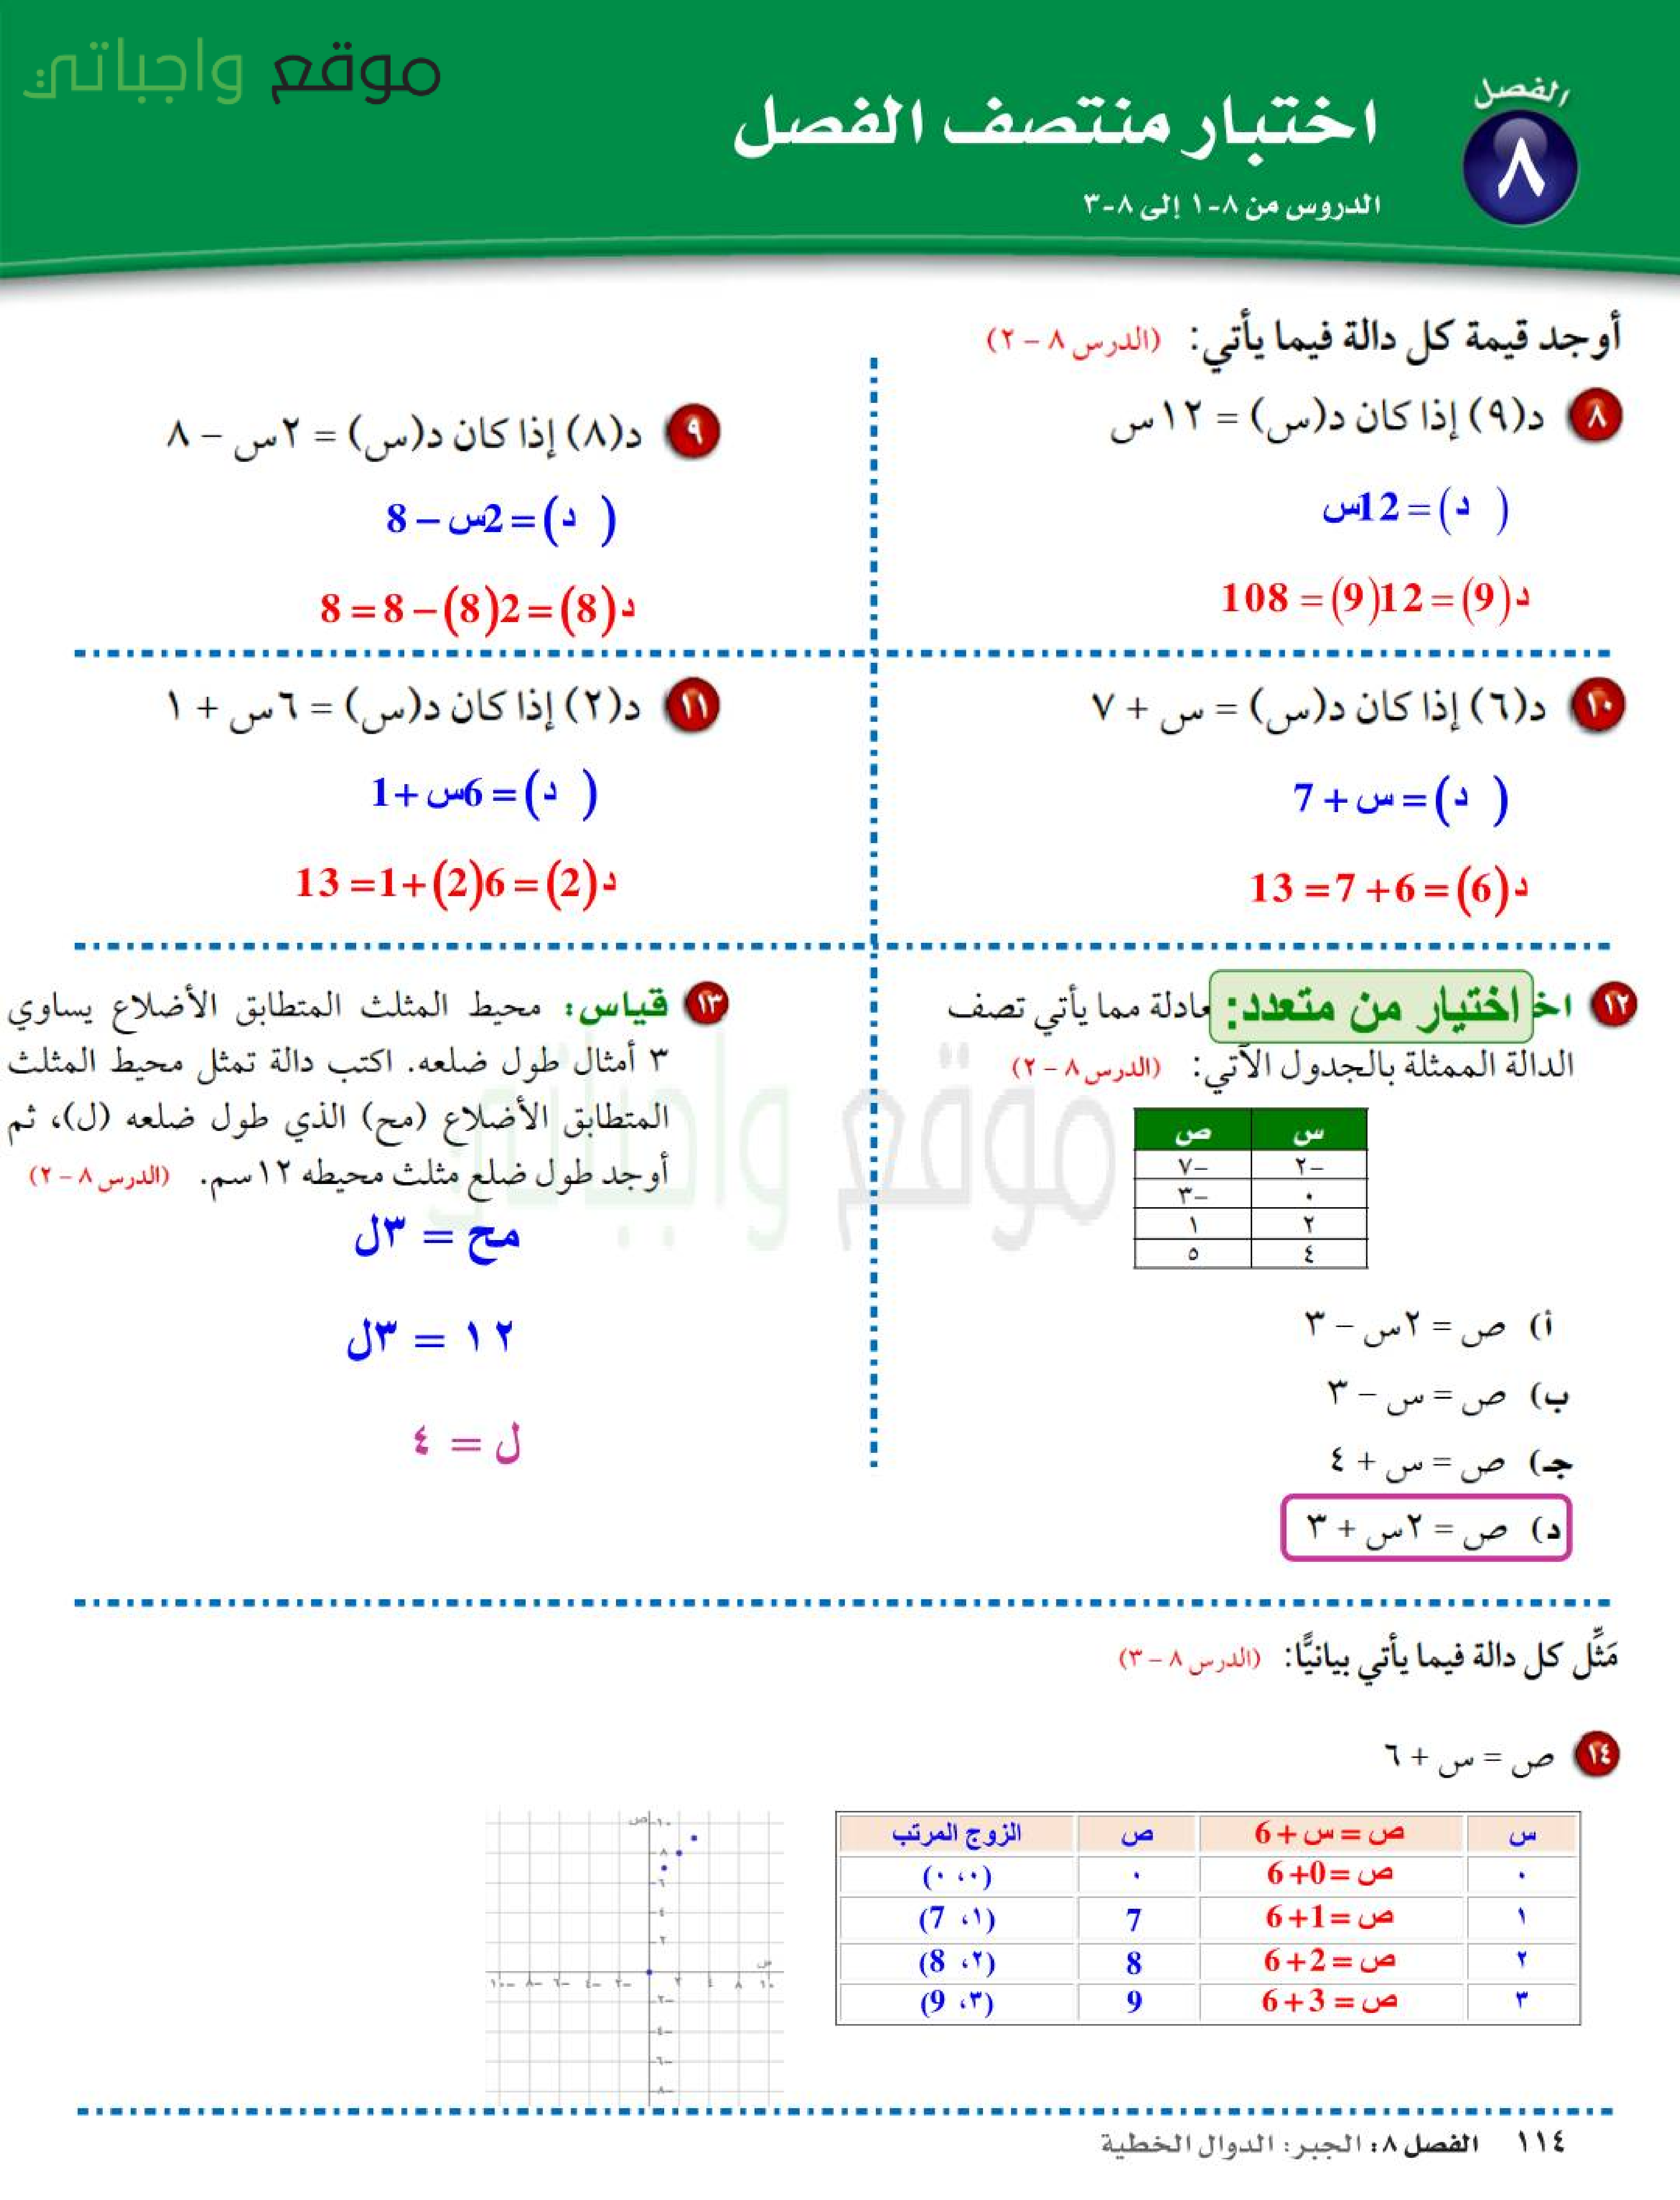 موقع واجباتي
الفصل
٨
اختبار منتصف الفصل
الدروس من ٨-١ إلى ٨-٣
أوجد قيمة كل دالة فيما يأتي: (الدرس ٨ – ٢)
٨ د(٩) إذا كان د(س) = ١٢س
د( ) = 12س
د(9) = 12(9) = 108
٩ د(٨) إذا كان د(س) = ٢س – ٨
د( ) = 2س – 8
د(8) = 2(8) – 8 = 8
١٠ د(٦) إذا كان د(س) = س + ٧
د( ) = س + 7
د(6) = 6 + 7 = 13
١١ د(٢) إذا كان د(س) = ٦س + ١
د( ) = 6س + 1
د(2) = 6(2) + 1 = 13
١٢ اخ اختيار من متعدد: عادلة مما يأتي تصف
الدالة الممثلة بالجدول الآتي: (الدرس ٨ – ٢)
س ص
–٢ –٧
٠ –٣
٢ ١
٤ ٥
أ) ص = ٢س – ٣
ب) ص = س – ٣
جـ) ص = س + ٤
د) ص = ٢س + ٣
١٣ قياس: محيط المثلث المتطابق الأضلاع يساوي
٣ أمثال طول ضلعه. اكتب دالة تمثل محيط المثلث
المتطابق الأضلاع (مح) الذي طول ضلعه (ل)، ثم
أوجد طول ضلع مثلث محيطه ١٢سم. (الدرس ٨ – ٢)
مح = ٣ل
١٢ = ٣ل
ل = ٤
موقع واجباتي
مَثِّل كل دالة فيما يأتي بيانيًّا: (الدرس ٨ – ٣)
١٤ ص = س + ٦
س ص = س + 6 ص الزوج المرتب
٠ ص = 0 + 6 ٠ (٠، ٠)
١ ص = 1 + 6 7 (١، 7)
٢ ص = 2 + 6 8 (٢، 8)
٣ ص = 3 + 6 9 (٣، 9)
ص
١٠
٨
٦
٤
٢
س
–١٠ –٨ –٦ –٤ –٢ ٢ ٤ ٨ ١٠
–٢
–٤
–٦
–٨
١١٤ الفصل ٨: الجبر: الدوال الخطية